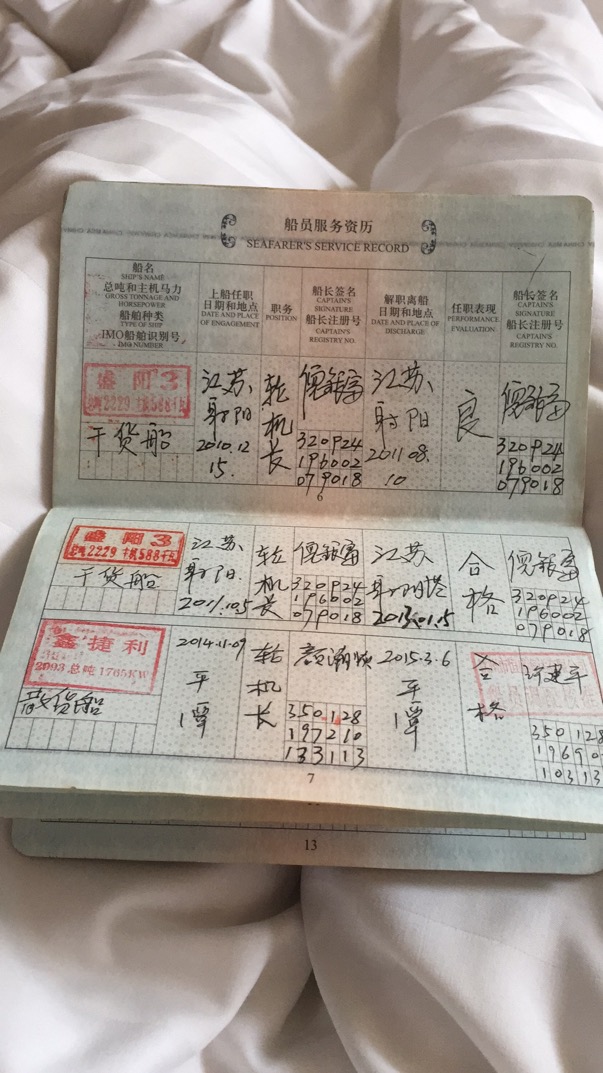 船员服务资历
SEAFARER'S SERVICE RECORD
船名
SHIP'S NAME
总吨和主机马力
GROSS TONNAGE AND
HORSEPOWER
船舶种类
TYPE OF SHIP
IMO船舶识别号
IMO NUMBER
上船任职
日期和地点
DATE AND PLACE
OF ENGAGEMENT
职务
POSITION
船长签名
CAPTAIN'S
SIGNATURE
船长注册号
CAPTAIN'S
REGISTRY NO.
解职离船
日期和地点
DATE AND PLACE OF
DISCHARGE
任职表现
PERFORMANCE
EVALUATION
船长签名
CAPTAIN'S
SIGNATURE
船长注册号
CAPTAIN'S
REGISTRY NO.
阳 3
2229 588
干货船
江苏
射阳
2010.12
15.
轮
机
长
320924
196002
079018
江苏
射阳
2011 08.
10
良
320924
196002
079018
6
阳 3
总吨2229 主机588千瓦
干货船
江苏
射阳
2011.10.5
轮
机
长
320924
196002
079018
江苏
射阳
2013.01.5
合
格
320924
196002
079018
鑫捷利
2993 总吨 1765KW
散货船
2014.11.09
平
潭
轮
机
长
350128
197210
133113
2015.3.6
平
潭
合
格
许建平
350128
19690
10313
7
13